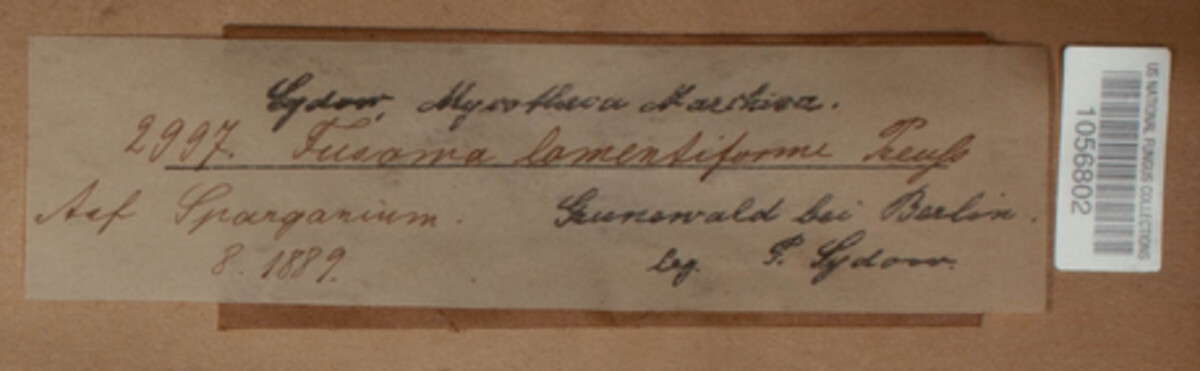 Sydow, Mycotheca Marchica.
2997. Fusoma lomentiforme Preuß
Auf Sparganium. Grunewald bei Berlin.
8. 1889. leg. P. Sydow.
US NATIONAL FUNGUS COLLECTIONS
1056802